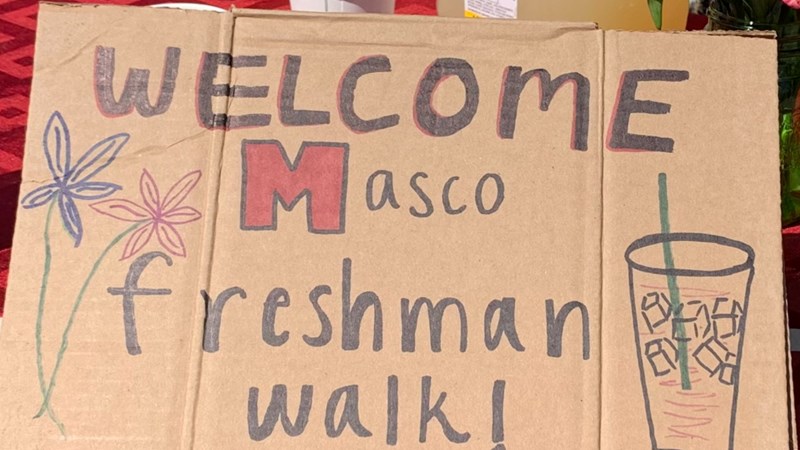 WELCOME
Masco
freshman
walk!